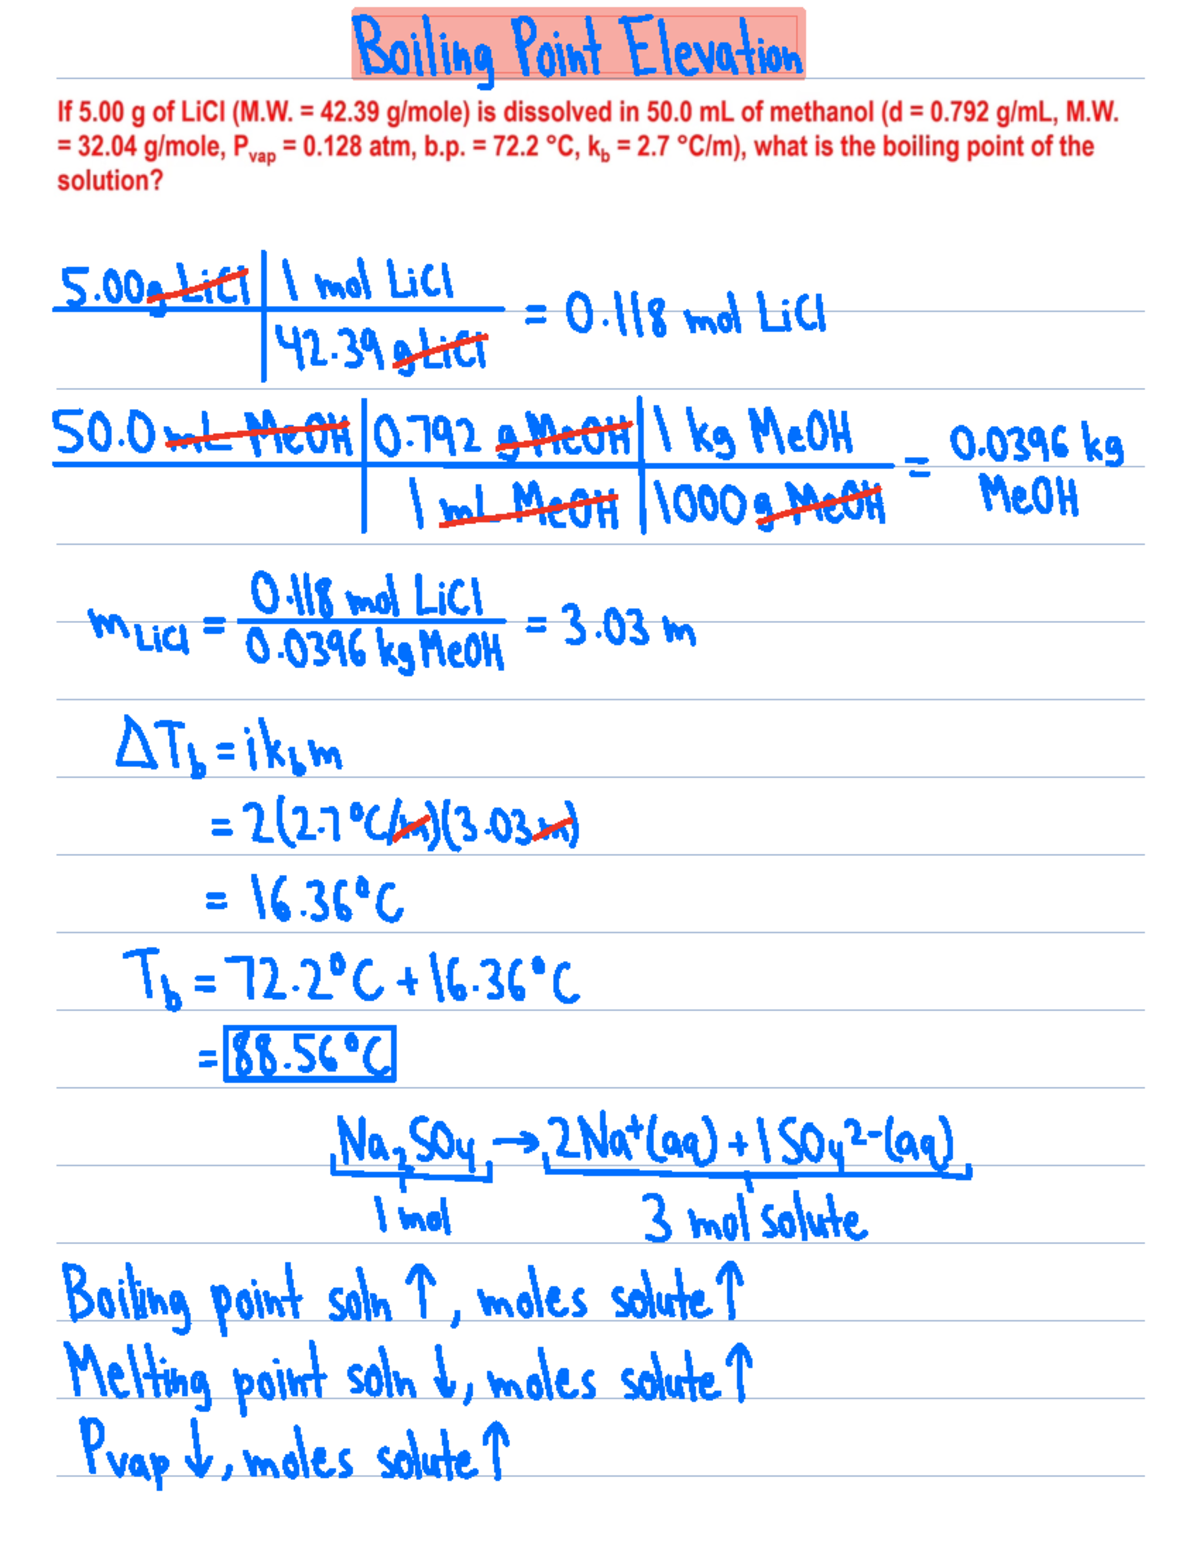 Boiling Point Elevation
If 5.00 g of LiCl (M.W. = 42.39 g/mole) is dissolved in 50.0 mL of methanol (d = 0.792 g/mL, M.W.
= 32.04 g/mole, Pvap = 0.128 atm, b.p. = 72.2 °C, kb = 2.7 °C/m), what is the boiling point of the
solution?
5.00 g LiCl | 1 mol LiCl
42.39 g LiCl
= 0.118 mol LiCl
50.0 mL MeOH | 0.792 g MeOH | 1 kg MeOH
1 mL MeOH | 1000 g MeOH
= 0.0396 kg
MeOH
m LiCl = 0.118 mol LiCl / 0.0396 kg MeOH = 3.03 m
ΔTb = i kb m
= 2(2.7°C/m)(3.03 m)
= 16.36°C
Tb = 72.2°C + 16.36°C
= 88.56°C
Na₂SO₄ → 2Na⁺(aq) + 1 SO₄²⁻(aq)
1 mol 3 mol solute
Boiling point soln ↑, moles solute ↑
Melting point soln ↓, moles solute ↑
Pvap ↓, moles solute ↑